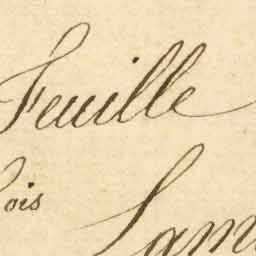 Feuille
ois
Lam